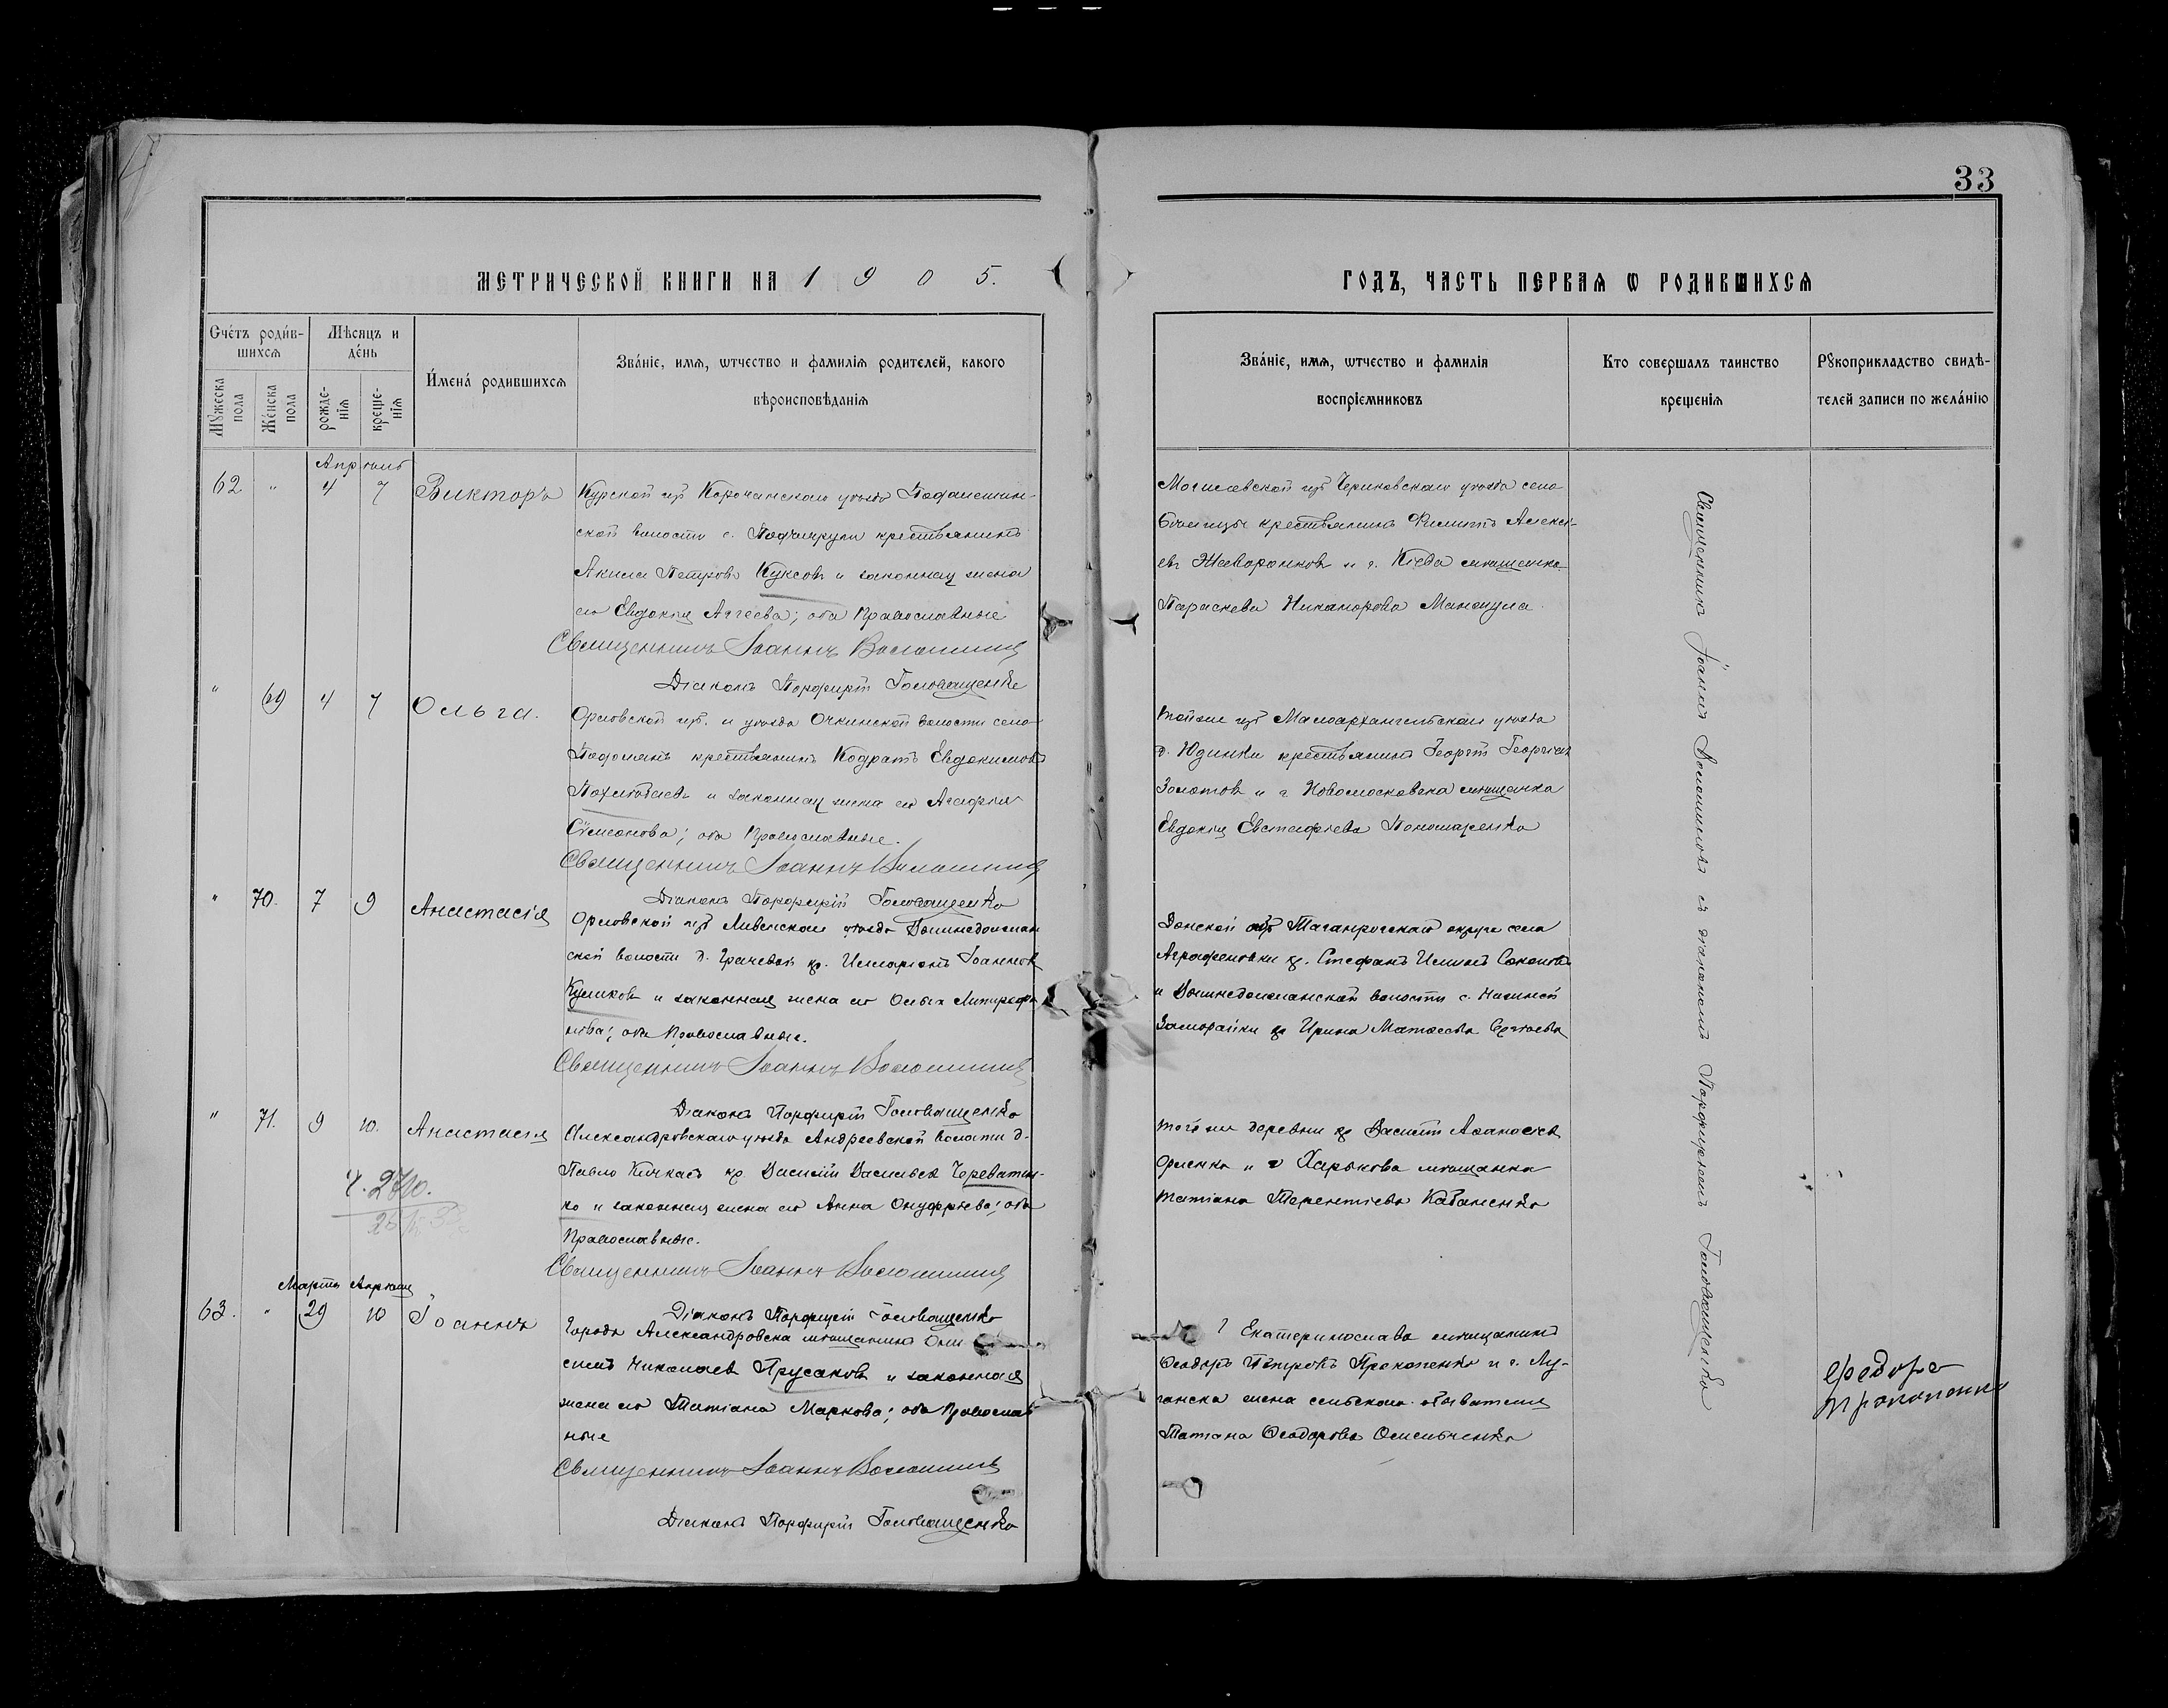 33
МЕТРИЧЕСКОЙ КНИГИ НА 1905.
ГОДЪ, ЧАСТЬ ПЕРВАЯ Ѡ РОДИВШИХСЯ
Счётъ роди́вшихся
Мѣсяцъ и де́нь
Мꙋжеска пола
Же́нска пола
рожде-нія
креще-нія
И́мена́ родившихся
Зва́ніе, имя, ѡтчество и фамилія родителей, какого
вѣроисповѣданія
Зва́ніе, имя, ѡтчество и фамилія
воспріемниковъ
Кто совершалъ таинство
крещенія
Рꙋкоприкладство свидѣ-
телей записи по жела́нію
Апрѣль
62 " 4 7 Викторъ
Курской губ Корочанскаго уѣзда
ской волости с. крестьянинъ
Акила Петровъ Куксовъ и законная жена
его Евдокія Аггеева; оба Православные
Священникъ Іоаннъ Волошиновъ
Діаконъ Порфирій Головащенко
Могилевской губ Чериковскаго уѣзда села
крестьянинъ Филиппъ Алексѣ-
евъ Жаворонковъ и г. Кіева мѣщанка
Параскева Никанорова
" 69 4 7 Ольга.
Орловской губ. и уѣзда Очкинской волости села
крестьянинъ Кодратъ Евдокимовъ
и законная жена его Агафія
Сѵмеонова; оба Православные.
Священникъ Іоаннъ Волошиновъ
Діаконъ Порфирій Головащенко
Той же губ Малоархангельскаго уѣзда
д. Юдинки крестьянинъ Георгій Георгіевъ
Золотовъ и г Новомосковска мѣщанка
Евдокія Евстафіева Пономаренко
" 70. 7 9 Анастасія
Орловской губ Ливенскаго уѣзда
ской волости д. Грачевой кр. Илларіонъ Іоанновъ
Куликовъ и законная жена его Ольга
оба Православные.
Священникъ Іоаннъ Волошиновъ
Діаконъ Порфирій Головащенко
Донской обл Таганрогскаго округа села
Аграфеновки кр. Стефанъ Соколовъ
и волости с.
кр Ирина Матѳеева Сергѣева
" 71. 9 10. Анастасія
Александровскаго уѣзда Андреевской волости д.
Павло Кичкасъ кр. Василій Васильевъ Череватен-
ко и законная жена его Анна Онуфріева; оба
Православные.
Священникъ Іоаннъ Волошиновъ
Діаконъ Порфирій Головащенко
той же деревни кр Василій Аѳанасіевъ
Орленко и г Харькова мѣщанка
Татіана Терентіева Кабаненко
Мартъ Апрѣль
63. " 29 10 Іоаннъ
Города Александровска мѣщанинъ Они
симъ Николаевъ Прусаковъ и законная
жена его Татіана Маркова; оба Православ
ные
Священникъ Іоаннъ Волошиновъ
Діаконъ Порфирій Головащенко
г Екатеринослава мѣщанинъ
Ѳеодоръ Петровъ Прокопенко и г. Лу-
ганска жена сельскаго обывателя
Татіана Ѳеодорова Омельченко
Федоръ
Прокопенко
Священникъ Іоаннъ Волошиновъ съ діакономъ Порфиріемъ Головащенко